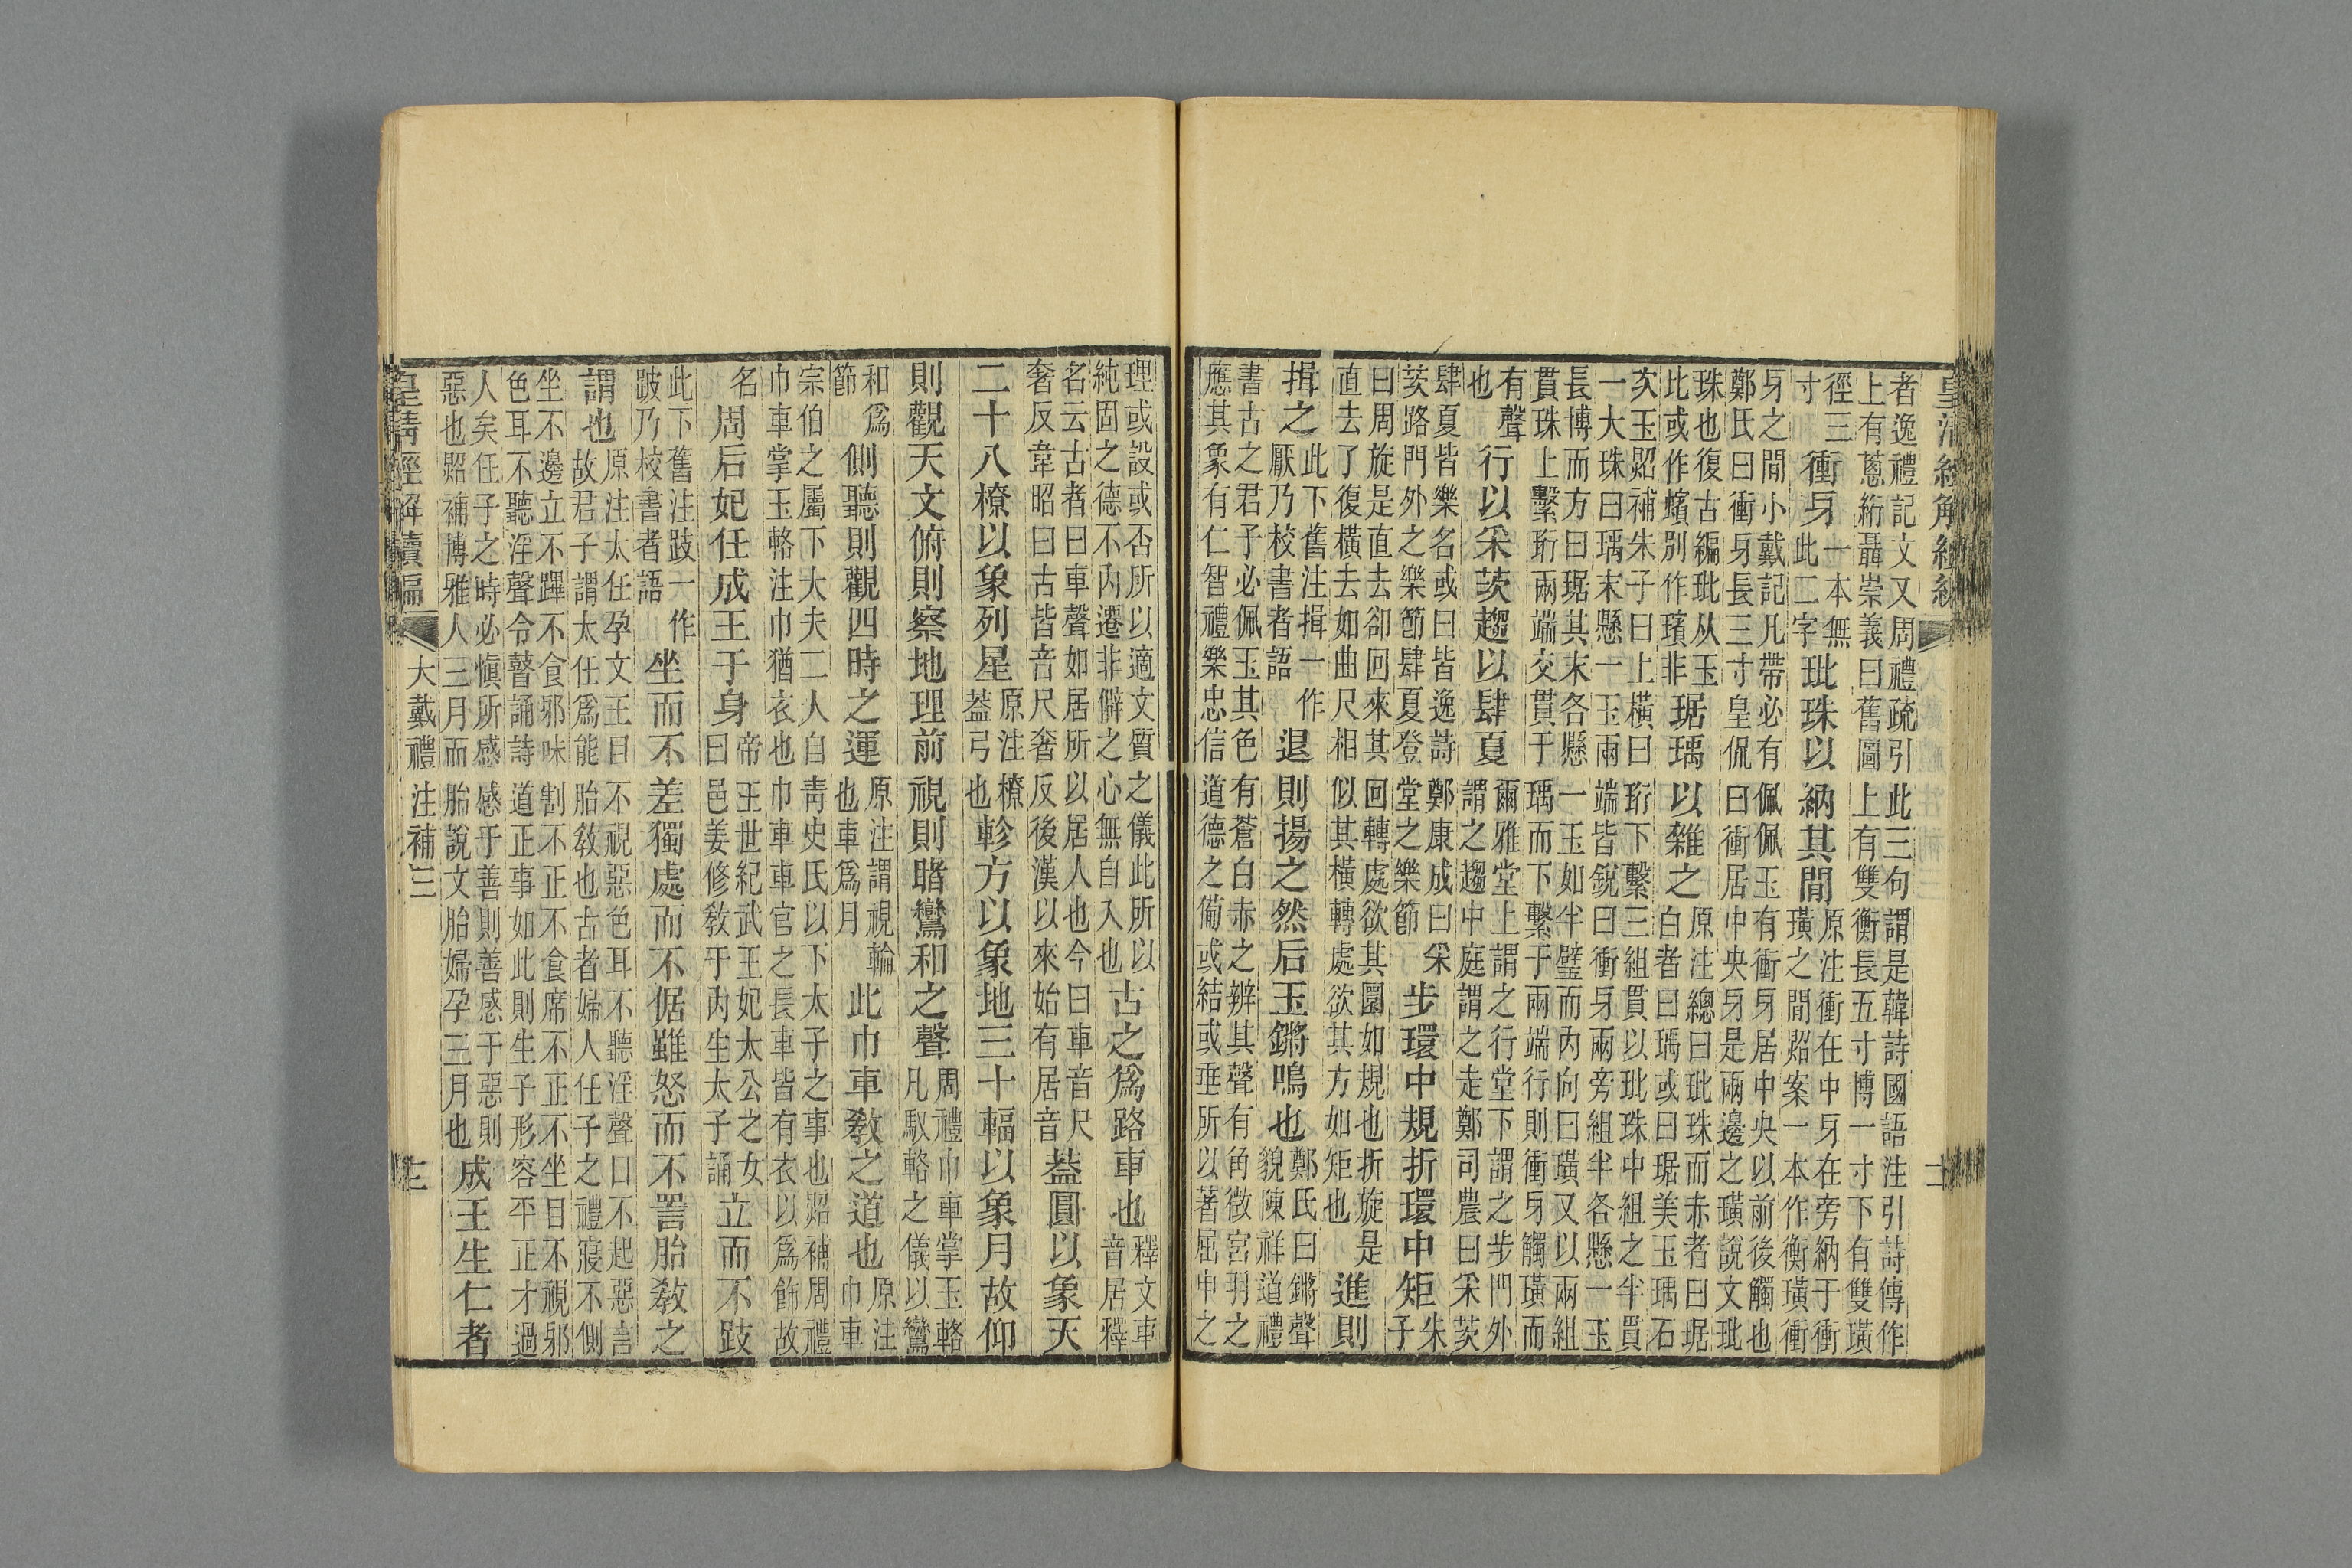 皇清經解續編
二
者逸禮記文又周禮疏引此三句謂是韓詩國語注引詩傳作
上有蔥絎聶崇義曰舊圖上有雙衡長五寸博一寸下有雙璜
徑三
寸
衝身
一本無
此二字
玭珠以納其閒
原注衝在中牙在旁納于衝
璜之閒照案一本作衡璜衝
牙之閒小戴記凡帶必有佩佩玉有衝牙居中央以前後觸也
鄭氏曰衝身長三寸皇侃曰衝居中央牙是兩邊之璜說文玭
珠也復古編玭从玉
比或作蠙別作璸非
琚瑀以雜之
原注總曰玭珠而赤者曰琚
白者曰瑀或曰琚美玉瑀石
次玉照補朱子曰上橫曰珩下繫三組貫以玭珠中組之半貫
一大珠曰瑀末懸一玉兩端皆銳曰衝牙兩旁組半各懸一玉
長博而方曰琚其末各懸一玉如半璧而內向曰璜又以兩組
貫珠上繫珩兩端交貫于瑀而下繫于兩端行則衝牙觸璜而
有聲
也
行以采茨趨以肆夏
爾雅堂上謂之行堂下謂之步門外
謂之趨中庭謂之走鄭司農曰采茨
肆夏皆樂名或曰皆逸詩鄭康成曰采
茨路門外之樂節肆夏登堂之樂節
步環中規折環中矩
朱
子
曰周旋是直去卻回來其回轉處欲其圜如規也折旋是
直去了復橫去如曲尺相似其橫轉處欲其方如矩也
進則
揖之
此下舊注揖一作
厭乃校書者語
退則揚之然后玉鏘鳴也
鄭氏曰鏘聲
貌陳祥道禮
書古之君子必佩玉其色有蒼白赤之辨其聲有角徵宮羽之
應其象有仁智禮樂忠信道德之葡或結或垂所以著屈申之
理或設或否所以適文質之儀此所以
純固之德不內遷非僻之心無自入也
古之爲路車也
釋文車
音居釋
名云古者曰車聲如居所以居人也今曰車音尺
奢反韋昭曰古皆音尺奢反後漢以來始有居音
蓋圓以象天
二十八橑以象列星
原注橑
蓋弓也
軫方以象地三十輻以象月故仰
則觀天文俯則察地理前視則睹鸞和之聲
周禮巾車掌玉輅
凡馭輅之儀以鸞
和爲
節
側聽則觀四時之運
原注謂視輪
也車爲月
此巾車敎之道也
原注
巾車
宗伯之屬下大夫二人自靑史氏以下太子之事也照補周禮
巾車掌玉輅注巾猶衣也巾車車官之長車皆有衣以爲飾故
名
周后妃任成王于身
帝王世紀武王妃太公之女
曰邑姜修敎于內生太子誦
立而不跂
此下舊注跂一作
跛乃校書者語
坐而不差獨處而不倨雖怒而不詈胎敎之
謂也
原注太任孕文王目不視惡色耳不聽淫聲口不起惡言
故君子謂太任爲能胎敎也古者婦人任子之禮寢不側
坐不邊立不蹕不食邪味割不正不食席不正不坐目不視邪
色耳不聽淫聲令瞽誦詩道正事如此則生子形容平正才過
人矣任子之時必愼所感感于善則善感于惡則
惡也照補博雅人三月而胎說文胎婦孕三月也
成王生仁者
皇清經解續編
大戴禮注補三